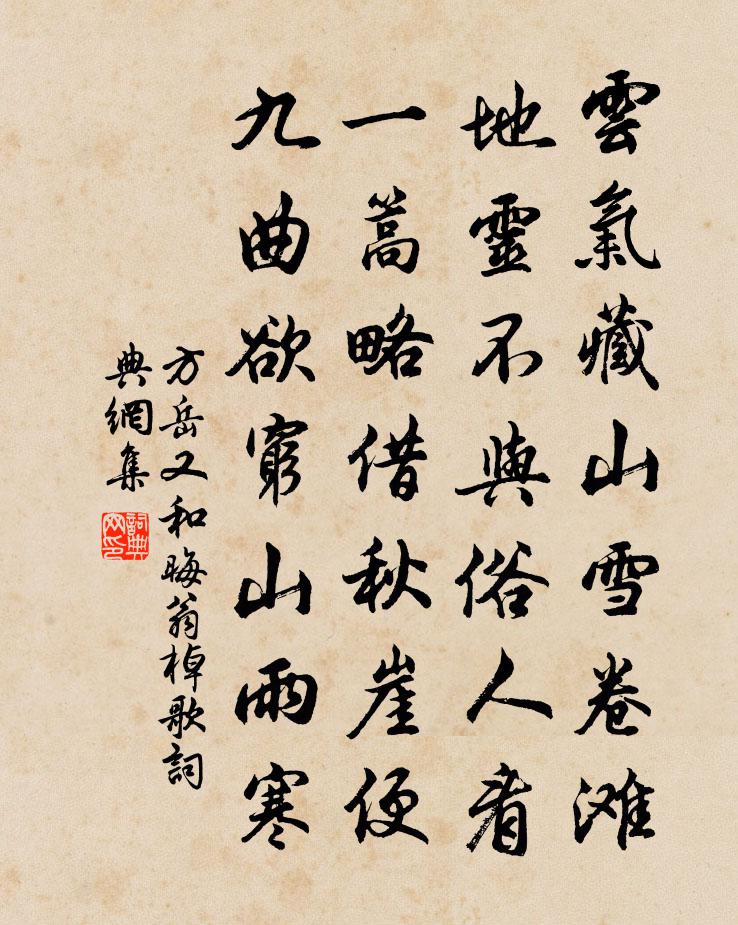 雲氣藏山雪卷滩
地靈不與俗人看
一篙略借秋崖便
九曲欲窮山雨寒
方岳又和晦翁棹歌詞
典網集
詞典网印